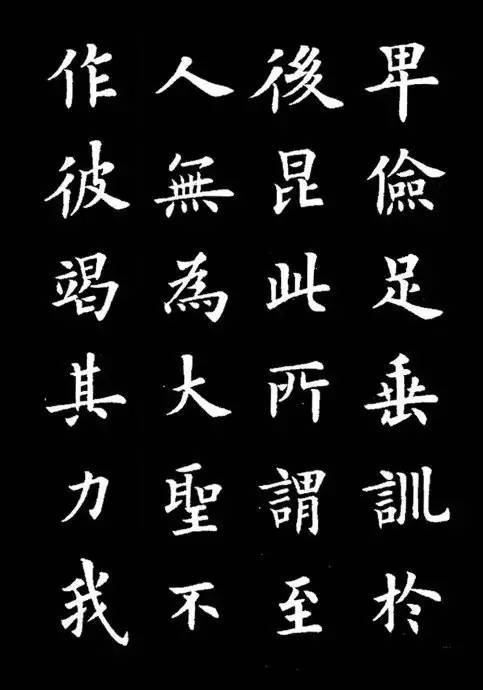 卑儉足垂訓於
後昆此所謂至
人無為大聖不
作彼竭其力我